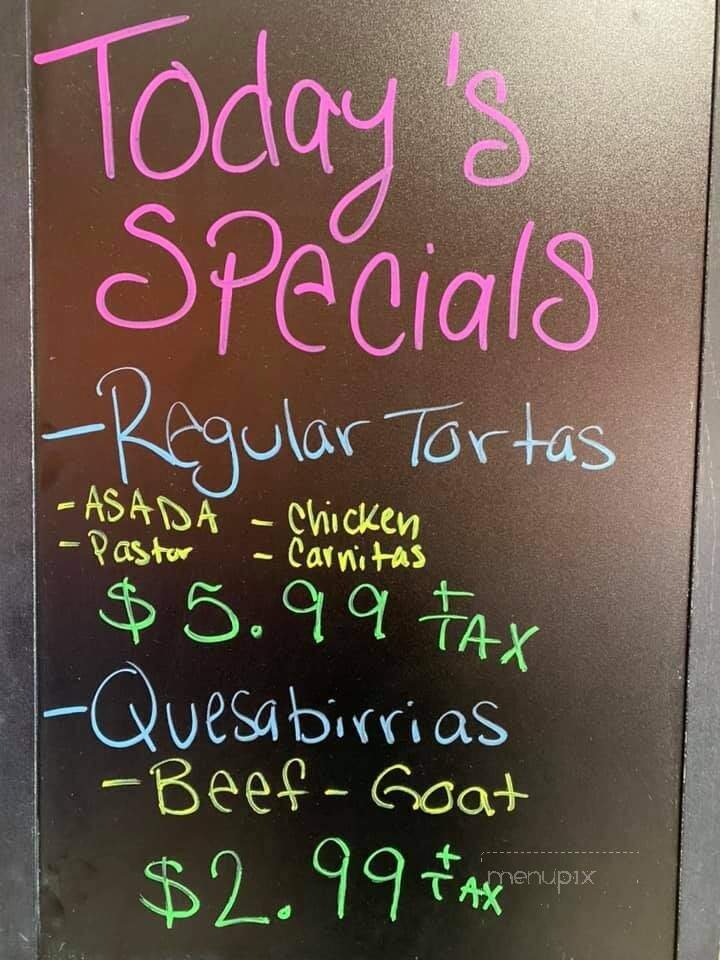 Today's
Specials
- Regular Tortas
- ASADA - Chicken
- Pastor - Carnitas
$5.99 + TAX
- Quesabirrias
- Beef - Goat
$2.99 + TAX
menupix